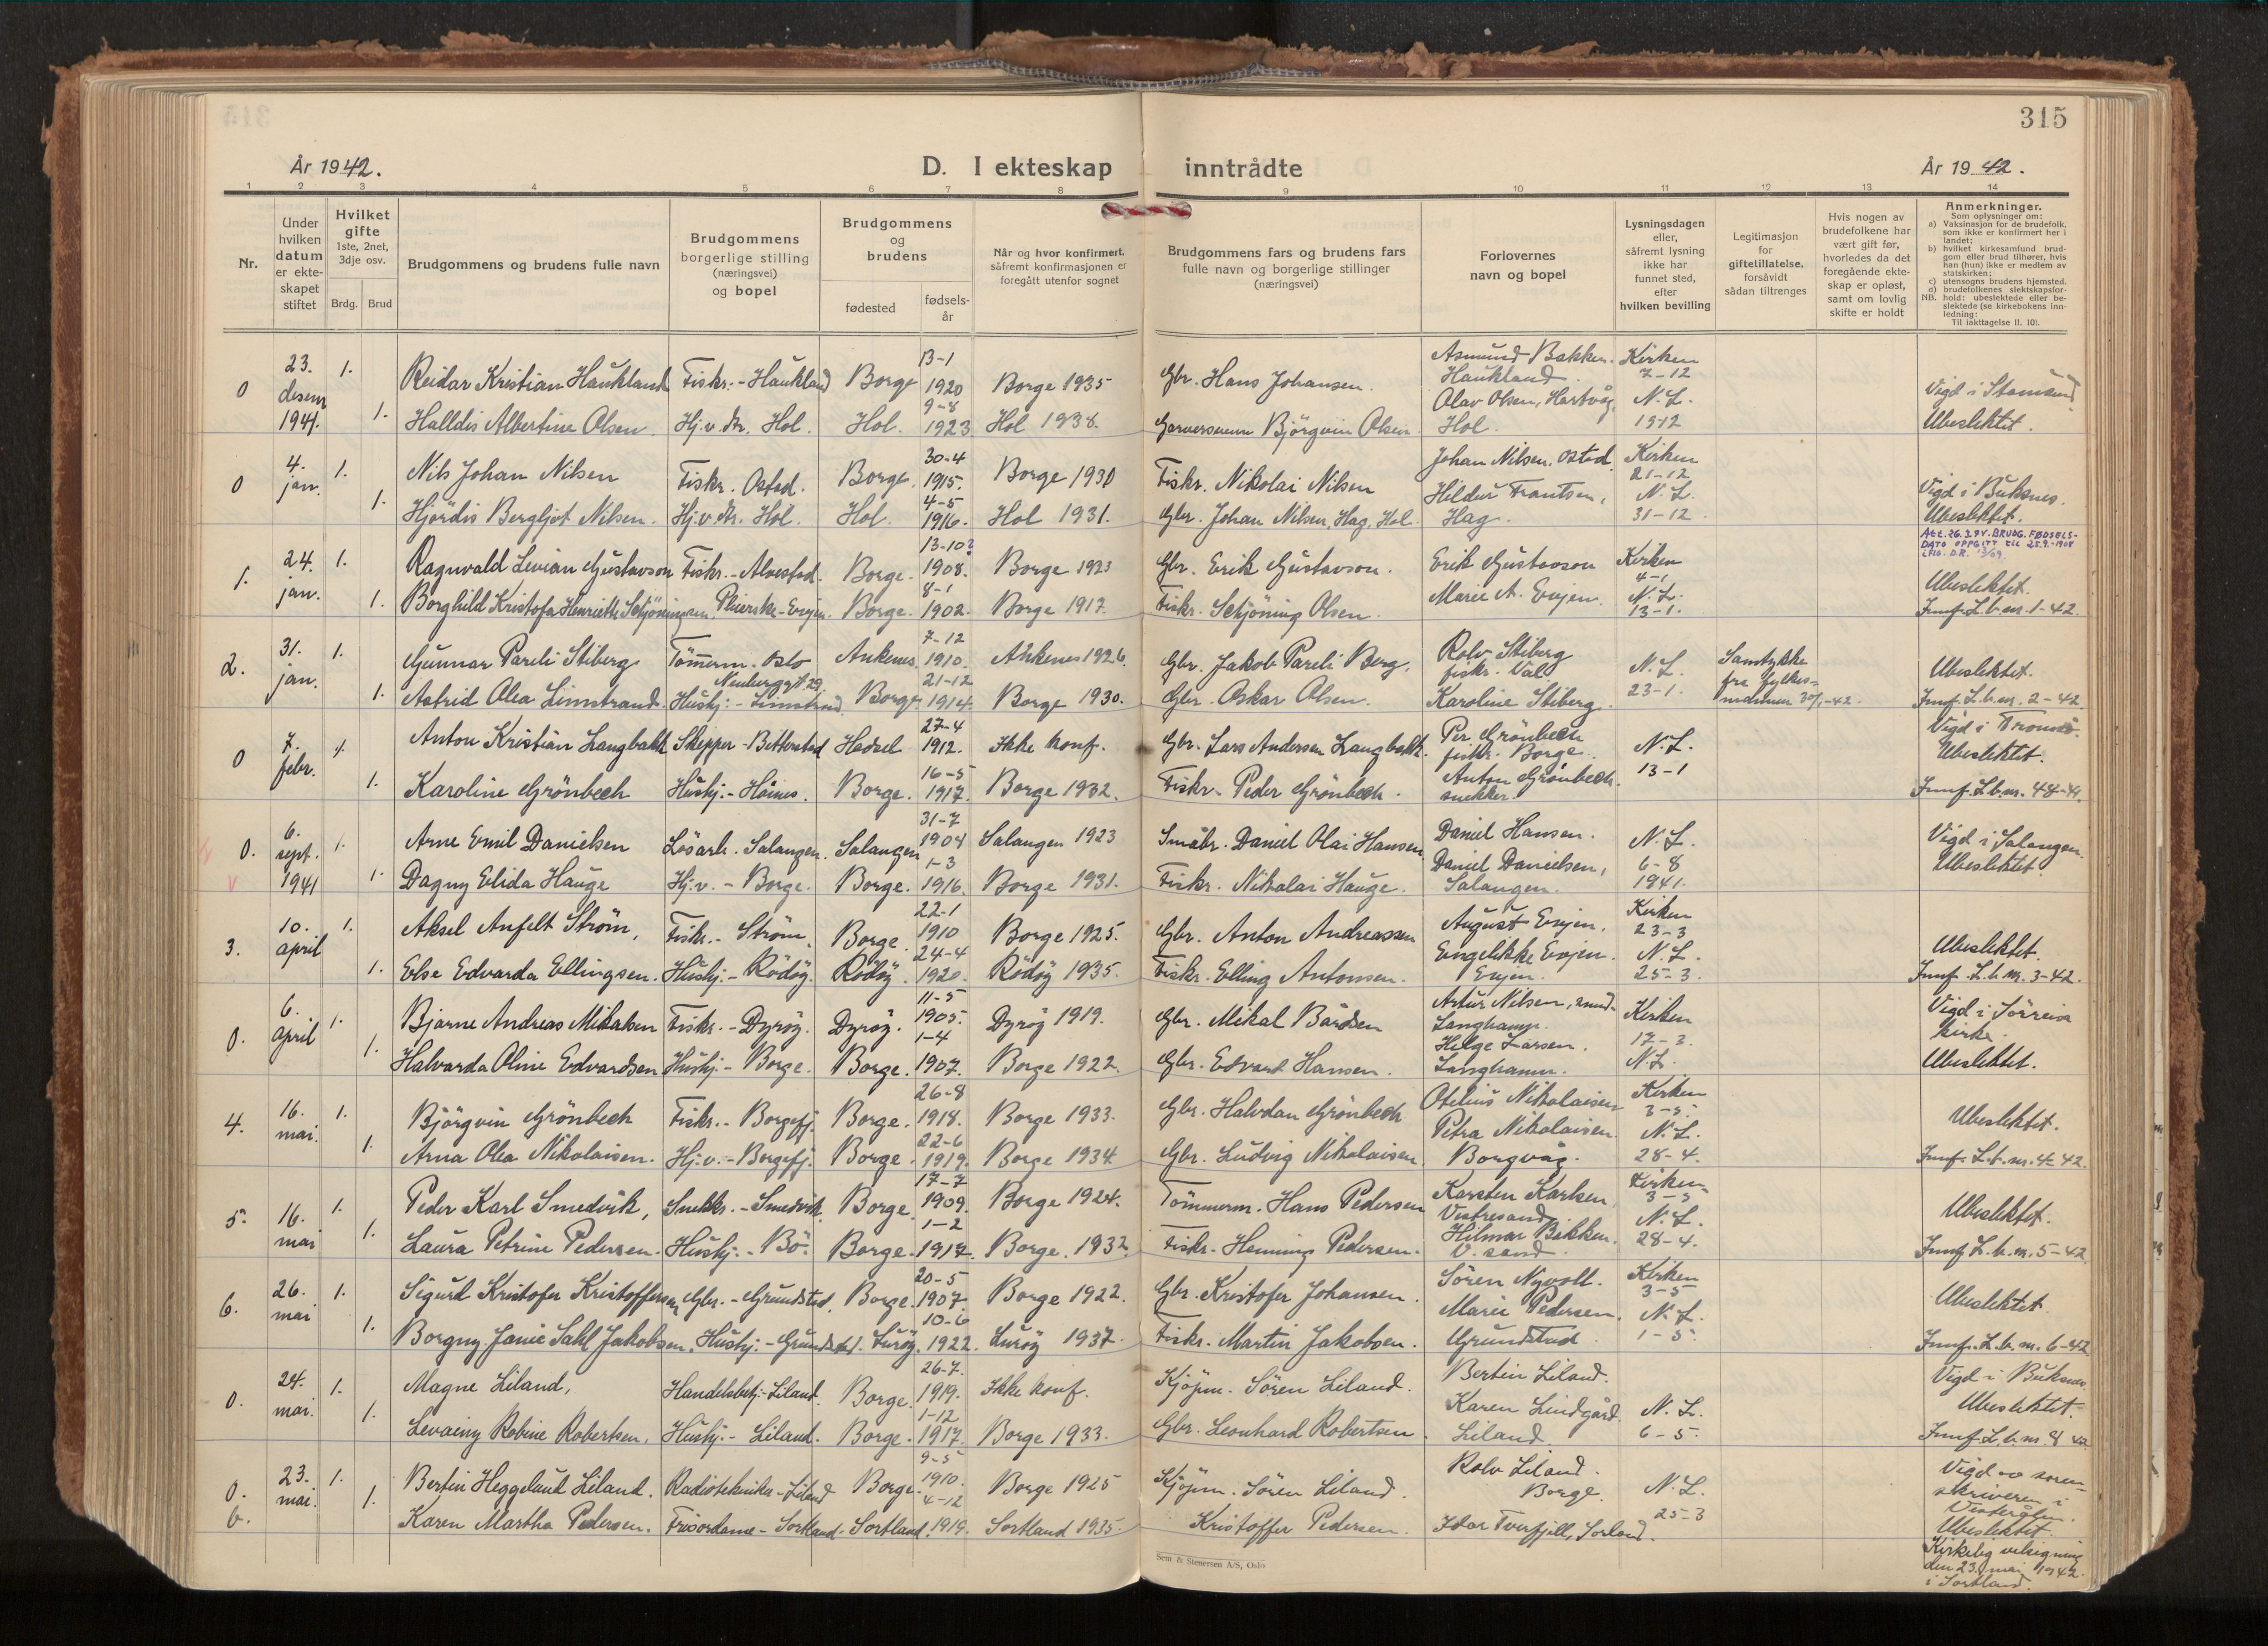 315
År 1942.
D. I ekteskap inntrådte
År 1942.
1 2 3 4 5 6 7 8 9 10 11 12 13 14
Nr.
Under hvilken datum er ekteskapet stiftet
Hvilket gifte 1ste, 2net, 3dje osv.
Brdg. Brud
Brudgommens og brudens fulle navn
Brudgommens borgerlige stilling (næringsvei) og bopel
Brudgommens og brudens
fødested
fødsels-år
Når og hvor konfirmert, såfremt konfirmasjonen er foregått utenfor sognet
Brudgommens fars og brudens fars fulle navn og borgerlige stillinger (næringsvei)
Forlovernes navn og bopel
Lysningsdagen eller, såfremt lysning ikke har funnet sted, efter hvilken bevilling
Legitimasjon for giftetillatelse, forsåvidt sådan tiltrenges
Hvis nogen av brudefolkene har vært gift før, hvorledes da det foregående ekteskap er opløst, samt om lovlig skifte er holdt
Anmerkninger.
Som oplysninger om:
a) Vaksinasjon for de brudefolk, som ikke er konfirmert her i landet;
b) hvilket kirkesamfund brudgom eller brud tilhører, hvis han (hun) ikke er medlem av statskirken;
c) utensogns brudens hjemsted.
d) brudefolkenes slektskapsforhold: ubeslektede eller beslektede (se kirkebokens innledning:
NB. Til iakttagelse II. 10).
0 23. desem 1941. 1. Reidar Kristian Haukland Fiskr. - Haukland Borge 13-1 1920 Borge 1935 Gbr. Hans Johansen. Asmund Bakken. Haukland. Kirken 7-12 Vigd i Stamsund
1. Halldis Albertine Olsen. Hj. v. dr. Hol. Hol. 9-8 1923 Hol 1938. Garversvenn Björgvin Olsen. Olav Olsen, Hartvåg, Hol. N. L. 1912 Ubeslektet.
0 4. jan. 1. Nils Johan Nilsen Fiskr. Ostad. Borge. 30-4 1915. Borge 1930 Fiskr. Nikolai Nilsen Johan Nilsen, Ostad Kirken 21-12 Vigd i Buksnes.
1. Hjørdis Bergljot Nilsen. Hj. v. dr. Hol. Hol. 4-5 1916. Hol 1931. Gbr. Johan Nilsen, Hag, Hol. Hildur Frantsen, Hag. N. L. 31-12 Ubeslektet.
1. 24. jan. 1. Ragnvald Levian Gustavson Fiskr. - Alvestad. Borge. 13-10? 1908. Borge 1923 Gbr. Erik Gustavson. Erik Gustavson Kirken 4-1 ATT. 26.3.74. BRUDG. FØDSELSDATO OPPGITT til 25.9.-1908
1. Borghild Kristofa Henriette Schjöningsen. Pleierske - Evjen. Borge. 8-1 1902. Borge 1917. Fiskr. Schjöning Olsen. Marie A. Evjen. N. L. 13-1. Ubeslektet. Jnnf. L. b. nr. 1-42.
2. 31. jan. 1. Gunnar Pareli Stiberg Tömmerm. Oslo Neuberggt 29 Ankenes 7-12 1910. Ankenes 1926. Gbr. Jakob Pareli Berg. Rolv Stiberg fiskr. Val N. L. 23-1. Samtykke fra fylkesmannen 30/1-42. Ubeslektet.
1. Astrid Olea Limstrand. Hushj. - Limstrand Borge 21-12 1914. Borge 1930. Gbr. Oskar Olsen. Karoline Stiberg. Jnnf. L. b. nr. 2-42
0 7. febr. 1. Anton Kristian Langbakk Skepper - Bitterstad Hadsel 27-4 1912. Ikke konf. Gbr. Lars Andersen Langbakk. Per Grönbech fiskr. Borge. N. L. 13-1 Vigd i Tromsö. Ubeslektet.
1. Karoline Grönbech Hushj. - Höines. Borge. 16-5 1917. Borge 1932. Fiskr. Peder Grönbech. Anton Grönbech. snekker. Jnnf. L. b. nr. 48-41.
0. 6. sept. 1941 1. Arne Emil Danielsen Lösarb. Salangen. Salangen 31-7 1904 Salangen 1923 Småbr. Daniel Olai Hansen Daniel Hansen. N. L. 6-8 1941. Vigd i Salangen.
1. Dagny Elida Hauge Hj. v. - Borge. Borge. 1-3 1916. Borge 1931. Fiskr. Nikolai Hauge. Daniel Danielsen, Salangen. Ubeslektet.
3. 10. april 1. Aksel Anfelt Ström, Fiskr. - Ström. Borge 22-1 1910 Borge 1925. Gbr. Anton Andreassen August Evjen. Kirken 23-3 Ubeslektet.
1. Else Edvarda Ellingsen. Hushj. - Rödöy. Rödöy. 24-4 1920. Rödöy 1935. Fiskr. Elling Antonsen. Engelikke Evjen. Evjen. N. L. 25-3. Jnnf. L. b. nr. 3-42.
0. 6. april 1. Bjarne Andreas Mikalsen Fiskr. - Dyröy. Dyröy. 11-5 1905. Dyröy 1919. Gbr. Mikal Bårdsen Artur Nilsen, Langhamn. Kirken 17-3. Vigd i Sörreisa kirke.
1. Halvarda Oline Edvardsen Hushj. - Borge. Borge. 1-4 1907. Borge 1922. Gbr. Edvard Hansen. Helge Larsen. Langhamn. N. L. Ubeslektet.
4. 16. mai. 1. Björgvin Grönbech Fiskr. - Borgefj. Borge. 26-8 1918. Borge 1933. Gbr. Halvdan Grönbech Otelius Nikolaisen Kirken 3-5. Ubeslektet.
1. Arna Olea Nikolaisen. Hj. v. - Borgefj. Borge. 22-6 1919. Borge 1934. Gbr. Ludvig Nikolaisen Petra Nikolaisen. Borgvåg. N. L. 28-4. Jnnf. L. b. nr. 4-42.
5. 16. mai 1. Peder Karl Smedvik, Snekkr. - Smedvik. Borge. 17-7 1909. Borge 1924. Tömmerm. Hans Pedersen Karsten Karlsen Vestresand. Kirken 3-5 Ubeslektet.
1. Laura Petrine Pedersen. Hushj. - Bö. Borge. 1-2 1917. Borge. 1932. Fiskr. Henning Pedersen. Hilmar Bekken. V. sand. N. L. 28-4. Jnnf. L. b. nr. 5-42
6. 26. mai 1. Sigurd Kristofer Kristoffersen Gbr. - Grundstad. Borge. 20-5 1907. Borge 1922. Gbr. Kristofer Johansen. Sören Nygoll. Kirken 3-5 Ubeslektet.
1. Borgny Janie Sahl Jakobsen. Hushj. - Grundstad. Luröy. 10-6 1922. Luröy 1937. Fiskr. Martin Jakobsen. Marie Pedersen. Grundstad. N. L. 1-5. Jnnf. L. b. nr. 6-42
0. 24. mai. 1. Magne Liland, Handelsbetj. - Liland. Borge. 26-7. 1919. Ikke konf. Kjöpm. Sören Liland. Bertin Liland. Vigd i Buksnes
1. Levainy Robine Robertsen, Hushj. - Liland. Borge. 1-12 1917. Borge 1933. Gbr. Leonhard Robertsen. Karen Lindgård Liland. N. L. 6-5. Ubeslektet. Jnnf. L. b. nr. 8 42
0. 23. mai. 1. Bertin Heggelund Liland. Radiotekniker - Liland Borge. 9-5 1910. Borge 1925 Kjöpm. Sören Liland. Rolv Liland. Borge. N. L. 25-3 Vigd av sorenskriveren i Vesterålen.
6. 1. Karen Martha Pedersen. Frisördame - Sortland. Sortland. 4-12 1919. Sortland 1935. Kristoffer Pedersen. Idar Tverfjell, Sorland. Ubeslektet.
Kirkelig velsignine den 23. mai 1942. i Sortland.
Sem & Stenersen A/S, Oslo